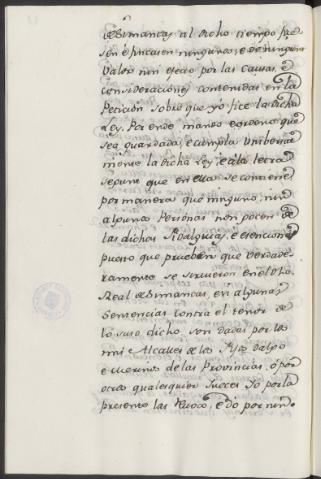 de Simancas al dicho tiempo fue
sen é fincasen ningunos; e de ningun
valor nin efecto por las causas, é
consideraciones contenidas en la
Peticion sobre que yo fice la dicha
Ley. Por ende mando é ordeno que
sea guardada, é cumpla
mente la dicha Ley, é á la letra
segun que en ella se contiene
por manera que ninguno, nin
algunas Personas non gocen de
las dichas Fidalguias, é esenciones
puesto que prueben que verdade
ramente se sirvieron en el dho
Real de Simancas, é si algunas
Sentencias contra el tenor de
lo suso dicho son dadas por los
mis Alcaldes de los Fijos dalgo
e Merinos de las Provincias, ó por
otros qualesquier Jueces yo por la
presente las Revoco, é do por nin